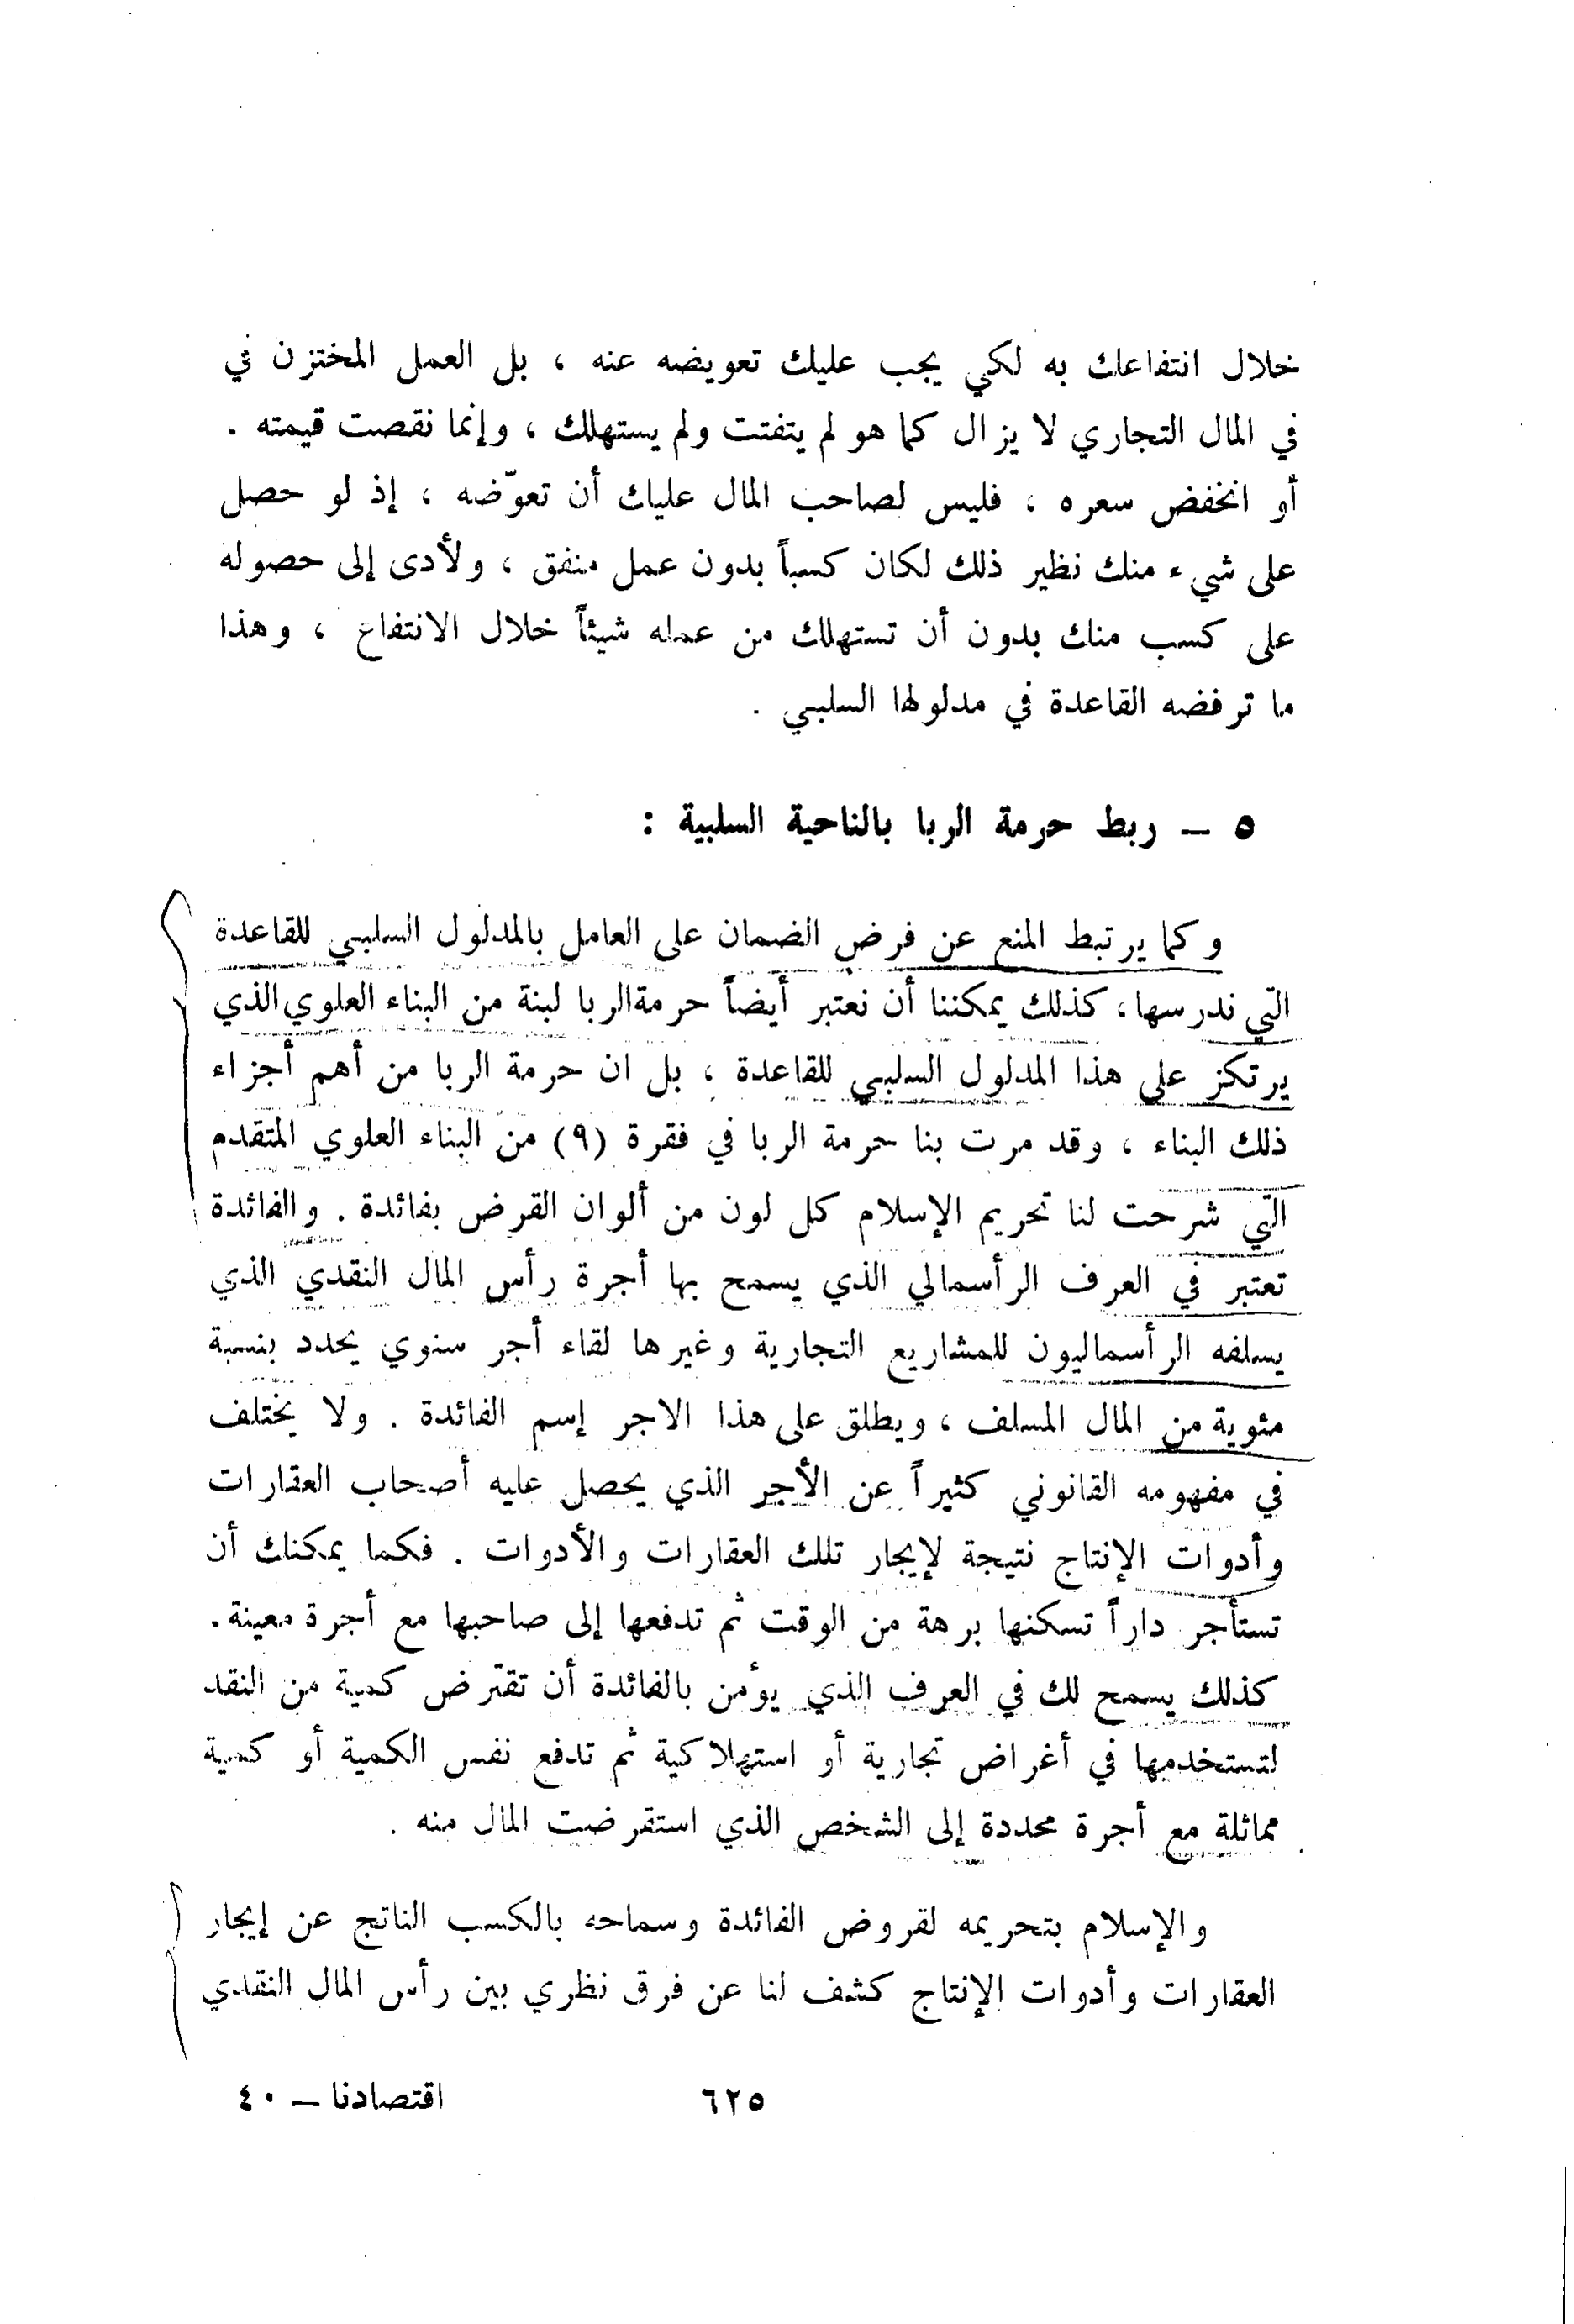 خلال انتفاعك به لكي يجب عليك تعويضه عنه ، بل العمل المختزن في
في المال التجاري لا يزال كما هو لم يتفتت ولم يستهلك ، وإنما نقصت قيمته .
أو انخفض سعره ، فليس لصاحب المال عليك أن تعوّضه ، إذ لو حصل
على شيء منك نظير ذلك لكان كسباً بدون عمل منفق ، ولأدى إلى حصوله
على كسب منك بدون أن تستهلك من عمله شيئاً خلال الانتفاع ، وهذا
ما ترفضه القاعدة في مدلولها السلبي .
٥ – ربط حرمة الربا بالناحية السلبية :
وكما يرتبط المنع عن فرض الضمان على العامل بالمدلول السلبي للقاعدة
التي ندرسها ، كذلك يمكننا أن نعتبر أيضاً حرمة الربا لبنة من البناء العلوي الذي
يرتكز على هذا المدلول السلبي للقاعدة ، بل ان حرمة الربا من أهم أجزاء
ذلك البناء ، وقد مرت بنا حرمة الربا في فقرة (٩) من البناء العلوي المتقدم
التي شرحت لنا تحريم الإسلام كل لون من ألوان القرض بفائدة . والفائدة
تعتبر في العرف الرأسمالي الذي يسمح بها أجرة رأس المال النقدي الذي
يسلفه الرأسماليون للمشاريع التجارية وغيرها لقاء أجر سنوي يحدد بنسبة
مئوية من المال المسلف ، ويطلق على هذا الاجر إسم الفائدة . ولا يختلف
في مفهومه القانوني كثيراً عن الأجر الذي يحصل عليه أصحاب العقارات
وأدوات الإنتاج نتيجة لإيجار تلك العقارات والأدوات . فكما يمكنك أن
تستأجر داراً تسكنها برهة من الوقت ثم تدفعها إلى صاحبها مع أجرة معينة .
كذلك يسمح لك في العرف الذي يؤمن بالفائدة أن تقترض كمية من النقد
لتستخدمها في أغراض تجارية أو استهلاكية ثم تدفع نفس الكمية أو كمية
مماثلة مع أجرة محددة إلى الشخص الذي استقرضت المال منه .
والإسلام بتحريمه لقروض الفائدة وسماحه بالكسب الناتج عن إيجار
العقارات وأدوات الإنتاج كشف لنا عن فرق نظري بين رأس المال النقدي
٦٢٥
اقتصادنا – ٤٠